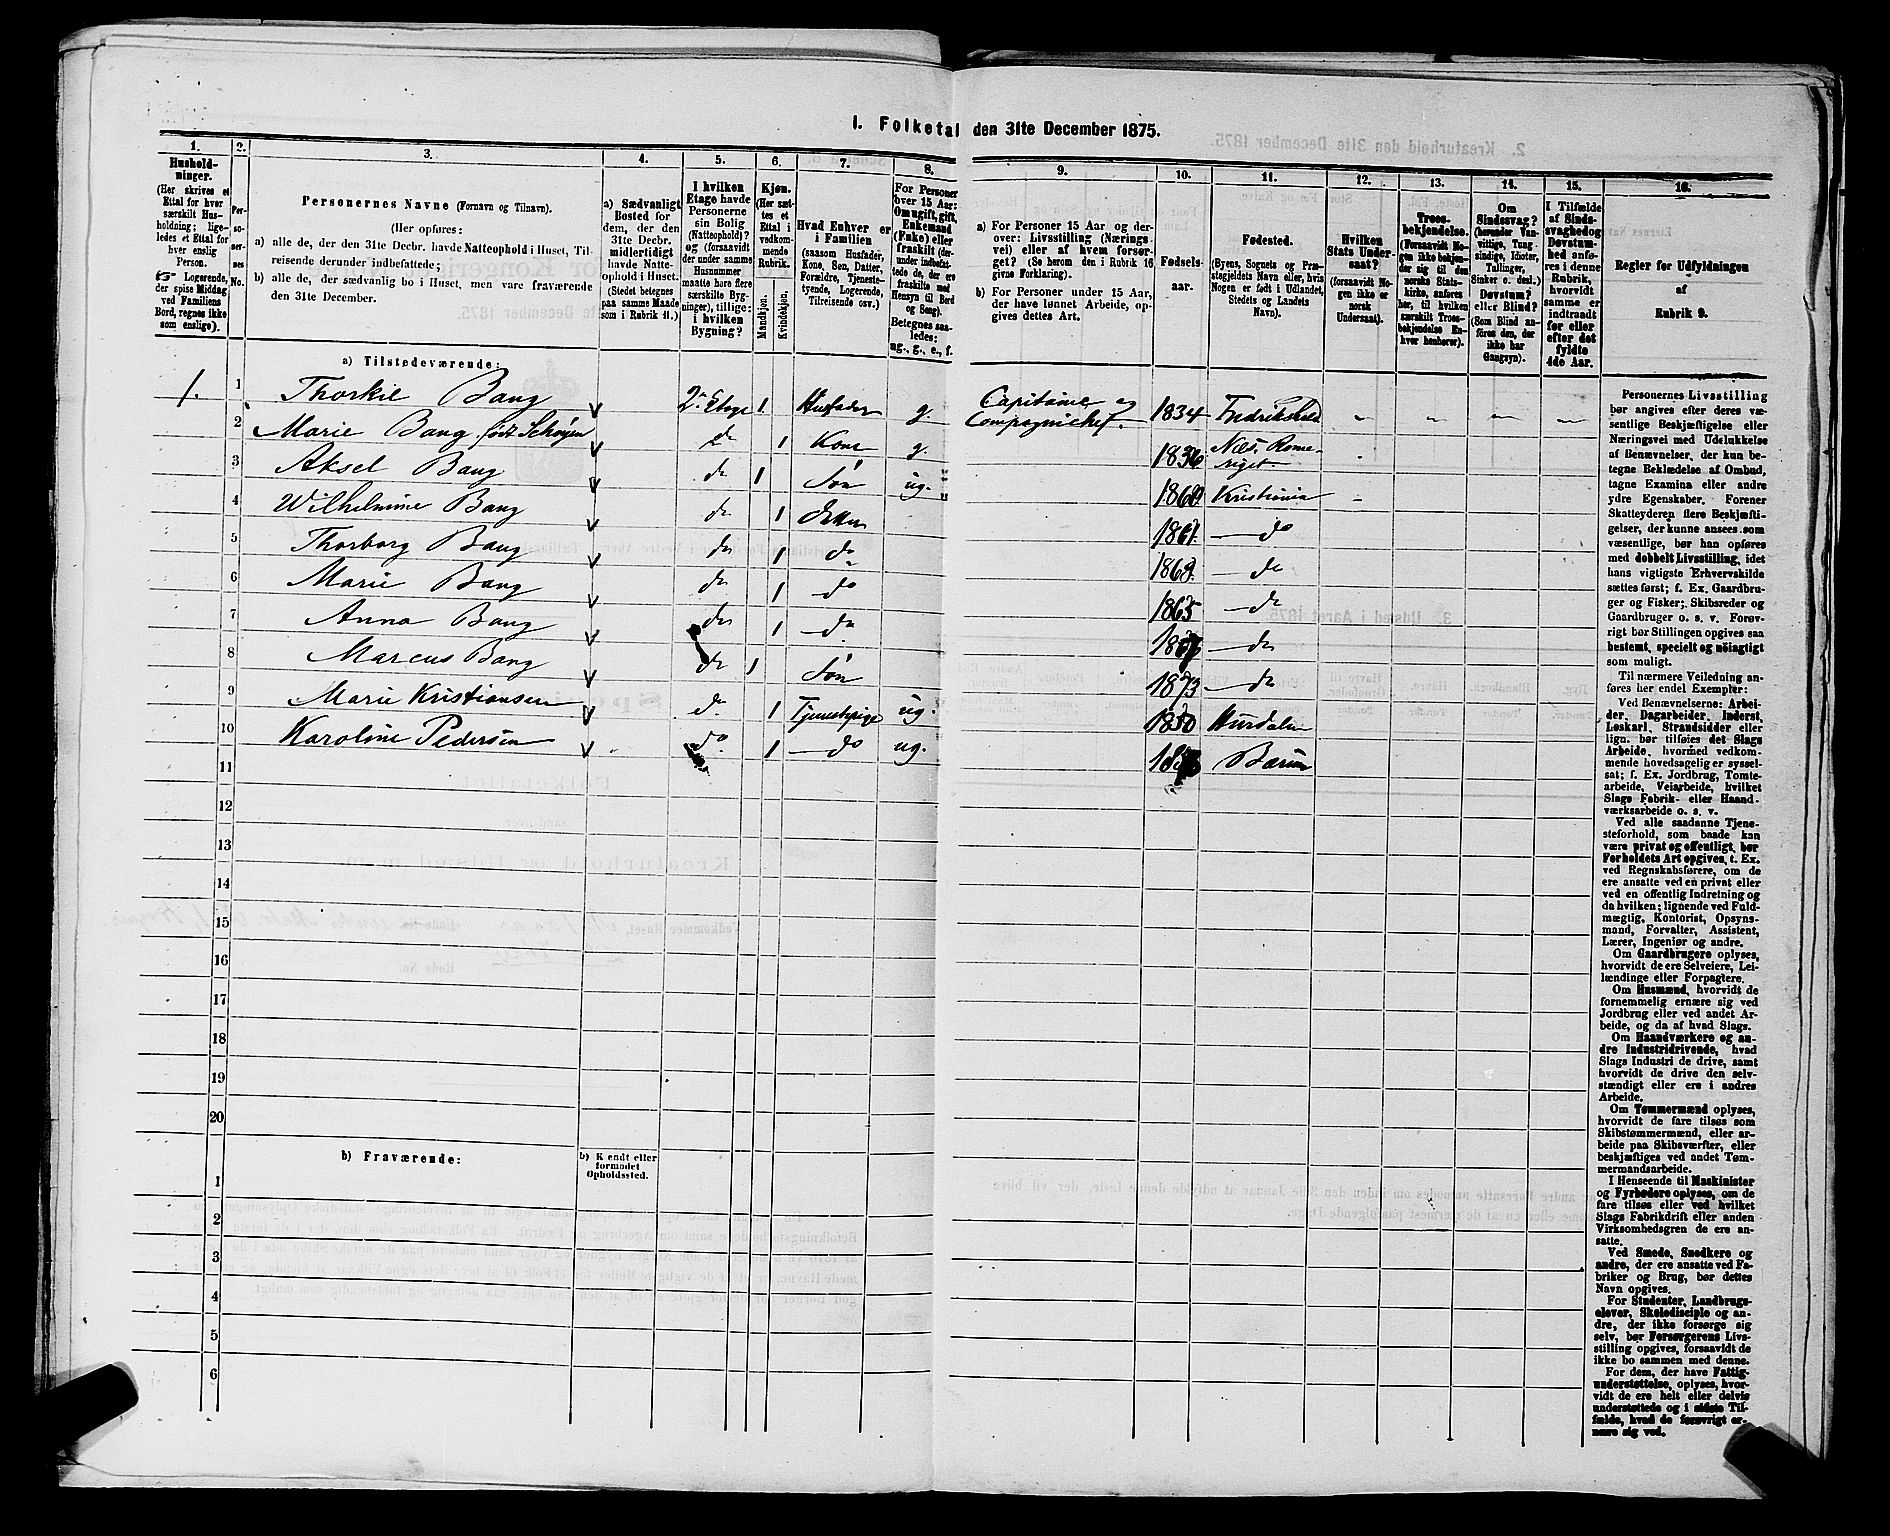 I. Folketal den 31te December 1875.
1. 2. 3. 4. 5. 6. 7. 8. 9. 10. 11. 12. 13. 14. 15. 16.
Husholdninger.
(Her skrives et
Ettal for hver
særskilt Husholdning;
ligeledes et Ettal for
hver enslig
Person.
Logerende,
der spise Middag
ved Familiens
Bord, regnes ikke
som enslige).
Personernes No.
Personernes Navne (Fornavn og Tilnavn).
(Her opføres:
a) alle de, der den 31te Decbr. havde Natteophold i Huset, Tilreisende derunder indbefattede;
b) alle de, der sædvanlig bo i Huset, men vare fraværende
den 31te December.
a) Sædvanligt
Bosted for
dem, der den
31te Decbr.
midlertidigt
havde Natteophold i Huset.
(Stedet betegnes
paa samme Maade
som i Rubrik 11.)
I hvilken
Etage havde
Personerne
sin Bolig
(Natteophold)?
og (forsaavidt
der under samme
Husnummer
maatte høre flere
særskilte Bygninger), tillige:
i hvilken
Bygning?
Kjøn.
(Her sættes et
Ettal i
vedkommende
Rubrik.
Mandkjøn.
Kvindekjøn.
Hvad Enhver er
i Familien
(saasom Husfader,
Kone, Søn, Datter,
Forældre, Tjenestetyende, Logerende,
Tilreisende osv.)
For Personer
over 15 Aar:
Om ugift, gift,
Enkemand
(Enke) eller
fraskilt (derunder indbefattede de, der ere
fraskilte med
Hensyn til Bord
og Seng).
Betegnes saaledes:
ug., g., e., f.
a) For Personer 15 Aar og derover: Livsstilling (Næringsvei) eller af hvem forsørget? (Se herom den i Rubrik 16
givne Forklaring).
b) For Personer under 15 Aar,
der have lønnet Arbeide, opgives dettes Art.
Fødselsaar.
Fødested.
(Byens, Sognets og Præstegjeldets Navn eller, hvis
Nogen er født i Udlandet,
Stedets og Landets
Navn).
Hvilken
Stats Undersaat?
(forsaavidt Nogen ikke er
norsk
Undersaat).
Troesbekjendelse.
(Forsaavidt Nogen ikke bekjender sig til den
norske Statskirke, anføres
her, til hvilken
særskilt Troesbekjendelse Enhver henhører).
Om
Sindssvag?
(herunder Vanvittige, Tungsindige, Idioter,
Tullinger,
Sinker o. desl.)
Døvstum?
eller Blind?
(Som Blind anføres den, der
ikke har
Gangsyn).
I Tilfælde
af Sindssvaghed og
Døvstumhed anføres i denne
Rubrik,
hvorvidt
samme er
indtraadt
før eller
efter det
fyldte
4de Aar.
Regler for Udfyldningen
af
Rubrik 9.
a) Tilstedeværende:
1. 1 Thorkil Bang 2. Etage 1. Husfader g. Capitaine og Compagnichef. 1834 Fredrikshald
2 Marie Bang født Schøyen do 1 Kone g. 1836 Næs. Romeriget
3 Aksel Bang do 1 Søn ug. 1860 Kristiania
4 Wilhelmine Bang do 1 Datter 1861. do
5 Thorborg Bang do 1 do do
6 Marie Bang do 1 do 1865 do
7 Anna Bang do 1 do do
8 Marcus Bang do 1 Søn 1873 do
9 Marie Kristiansen do 1 Tjenestepige ug. 1850 Hurdalen
10 Karoline Pedersen do 1 do ug. Bærum
11
12
13
14
15
16
17
18
19
20
b) Fraværende:
b) Kjendt eller
formodet
Opholdssted.
1
2
3
4
5
6
Personernes Livsstilling
bør angives efter deres væsentlige Beskjæftigelse eller
Næringsvei med Udelukkelse
af Benævnelser, der kun betegne Beklædelse af Ombud,
tagne Examina eller andre
ydre Egenskaber. Forener
Skatteyderen flere Beskjæftigelser, der kunne ansees som
væsentlige, bør han opføres
med dobbelt Livsstilling, idet
hans vigtigste Erhvervskilde
sættes først; f. Ex. Gaardbruger og Fisker; Skibsreder og
Gaardbruger o. s. v. Forøvrigt bør Stillingen opgives saa
bestemt, specielt og nøiagtigt
som muligt.
Til nærmere Veiledning anføres her endel Exempler:
Ved Benævnelserne: Arbeider, Dagarbeider, Inderst,
Løskarl, Strandsidder eller
lign. bør tilføies det Slags
Arbeide, hvormed vedkommende hovedsagelig er sysselsat; f. Ex. Jordbrug, Tomtearbeide, Veiarbeide, hvilket
Slags Fabrik- eller Haandværksarbeide o. s. v.
Ved alle saadanne Tjenesteforhold, som baade kan
være privat og offentligt, bør
Forholdets Art opgives, t. Ex.
ved Regnskabsførere, om de
ere ansatte ved en privat eller
ved en offentlig Indretning og
da hvilken; lignende ved Fuldmægtig, Kontorist, Opsynsmand, Forvalter, Assistent,
Lærer, Ingeniør og andre.
Om Gaardbrugere oplyses,
hvorvidt de ere Selveiere, Leilændinge eller Forpagtere.
Om Husmænd, hvorvidt de
fornemmelig ernære sig ved
Jordbrug eller ved andet Arbeide, og da af hvad Slags.
Om Haandværkere og andre Industridrivende, hvad
Slags Industri de drive, samt
hvorvidt de drive den selvstændigt eller ere i andres
Arbeide.
Om Tømmermænd oplyses,
hvorvidt de fare tilsøs som
Skibstømmermænd, eller arbeide paa Skibsværfter, eller
beskjæftiges ved andet Tømmermandsarbeide.
I Henseende til Maskinister
og Fyrbødere oplyses, om de
fare tilsøs eller ved hvilket
Slags Fabrikdrift eller anden
Virksomhedsgren de ere ansatte.
Ved Smede, Snedkere og
andre, der ere ansatte ved Fabriker og Brug, bør dettes
Navn opgives.
For Studenter, Landbrugselever, Skoledisciple og andre, der ikke forsørge sig
selv, bør Forsørgerens Livsstilling opgives, forsaavidt de
ikke bo sammen med denne.
For dem, der have Fattigunderstøttelse, oplyses, hvorvidt de ere helt eller delvis
understøttede og i sidste Tilfælde, hvad de forøvrigt ernære sig ved.